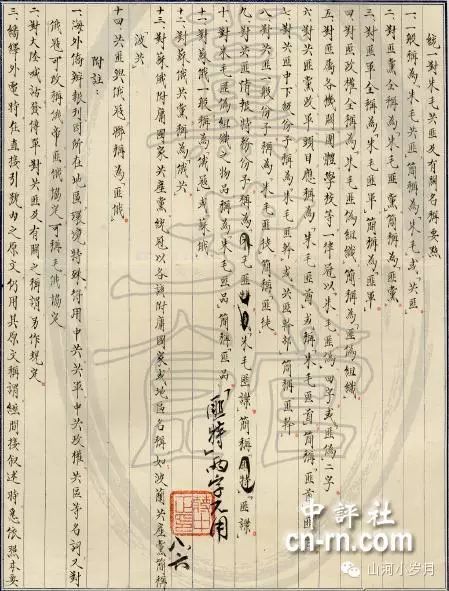 統一對朱毛共匪及有關名稱要點
一、一般稱為「朱毛共匪」簡稱為「朱毛」或「共匪」
二、對匪黨全稱為「朱毛匪黨」簡稱為「匪黨」
三、對匪軍全稱為「朱毛匪軍」簡稱為「匪軍」
四、對匪政權全稱為「朱毛匪偽組織」簡稱為「匪偽組織」
五、對匪屬各機關團體學校等一律冠以「朱毛匪偽」四字或「匪偽」二字
六、對匪黨政軍頭目應稱為「朱毛匪酋」或稱「朱毛匪首」簡稱「匪酋」「匪
七、對共匪中下級份子可稱為「朱毛匪幹」或「共匪幹部」簡稱「匪幹」
八、對共匪一般份子稱為「朱毛匪徒」簡稱「匪徒」
九、對共匪情報特務份子稱為「朱毛匪諜」簡稱「匪諜」
十、對朱毛匪偽組織之物品稱為「朱毛匪品」簡稱「匪品」
「匪特」兩字不用
十一、對蘇俄一般稱為「俄寇」或「蘇俄」
十二、對蘇俄共黨稱為「俄共」
十三、對蘇俄附庸國家共產黨統冠以各該附庸國家或地區名稱如「波蘭共產黨」簡稱
「波共」
十四、共匪與俄寇聯稱為「匪俄」
附註：
一、海外僑辦報刊因所在地區環境特殊得用「中共」「共軍」「中共政權」「共區」等名詞又對
俄寇可改稱「俄帝」「匪俄協定」可稱「毛俄協定」
二、對大陸喊話發傳單對共匪及有關之稱謂另作規定
三、繙繹外電特在直接引號內之原文仍用其原文稱謂經間接敘述時悉依照本要
中評社
cn-rn.com
山河小岁月